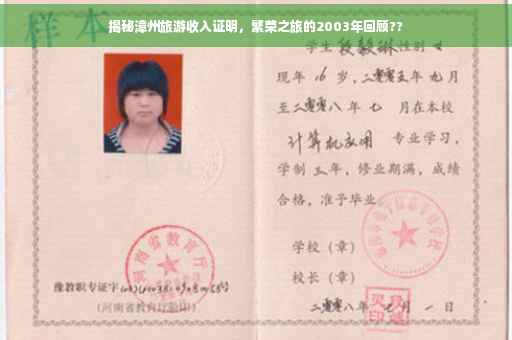 揭秘漳州旅游收入证明，繁荣之旅的2003年回顾??
样本
学生段毅琳性别
现年 16 岁，二零零五年 九月
至二零零八年 七 月在本校
计算机应用 专业学习，
学制 三 年，修业期满，成绩
合格，准予毕业
学校（章）
校长（章）
二零零八年 月 一 日
河南省教育厅
豫教职专证字
（河南省教育厅验印）